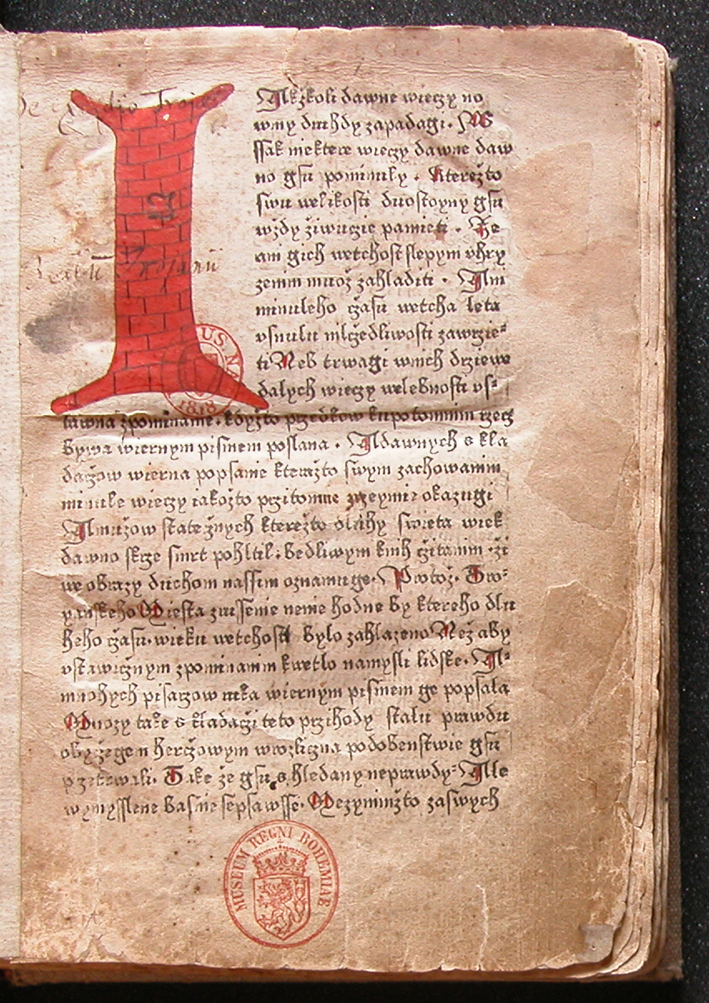 I
Ačžkoli dawne wieczy no
winy duchdy zapadagi. Ws
ssak niektere wieczy dawne daw
no gsu pominuly. Kterežto
swu welikosti duostoyny gsu
wždy žiwugie pamieti. Že
ani gich wetchost slepym ohry
zenim muož zahladiti. Ani
minuleho čzasu wetcha leta
vsnulu mlčzedliwosti zawrzie-
ti Neb trwagi wnich drziewe
dalych wieczy welebnosti vs-
tawna zpominanie. kdyžto przedkow kupotomnim rzecz
bywa wiernym pismem poslana. A dawnych skla
daczow wierna popsanie kterážto swym zachowanim
minule wieczy iakožto przitomne zrzeymie okazugi
A mužow statečznych kterežto dluhy swieta wiek
dawno skrze smrt pohltil: bedliwym knih čzitanim ži
we obrazy duchom nassim oznamuge. Protož. Tro-
yanskeho Miesta zrussenie nenie hodne by ktereho dlu
heho čzasu wieku wetchosti bylo zahlazeno Než aby
vstawičznym zpominanim kwetlo namysli lidske. A-
mnohych pisaczow ruka wiernym pismem ge popsala
Mnozy take skladagi teto przihody stalu prawdu
obyčzegem herčzowym wrozličzna podobenstwie gsu
przetwarzili. Take že gsu shledany neprawdy- Ale
wymysslene basnie sepsawsse. Mezyniimžto zaswych
1818
MUSEUM REGNI BOHEMIAE